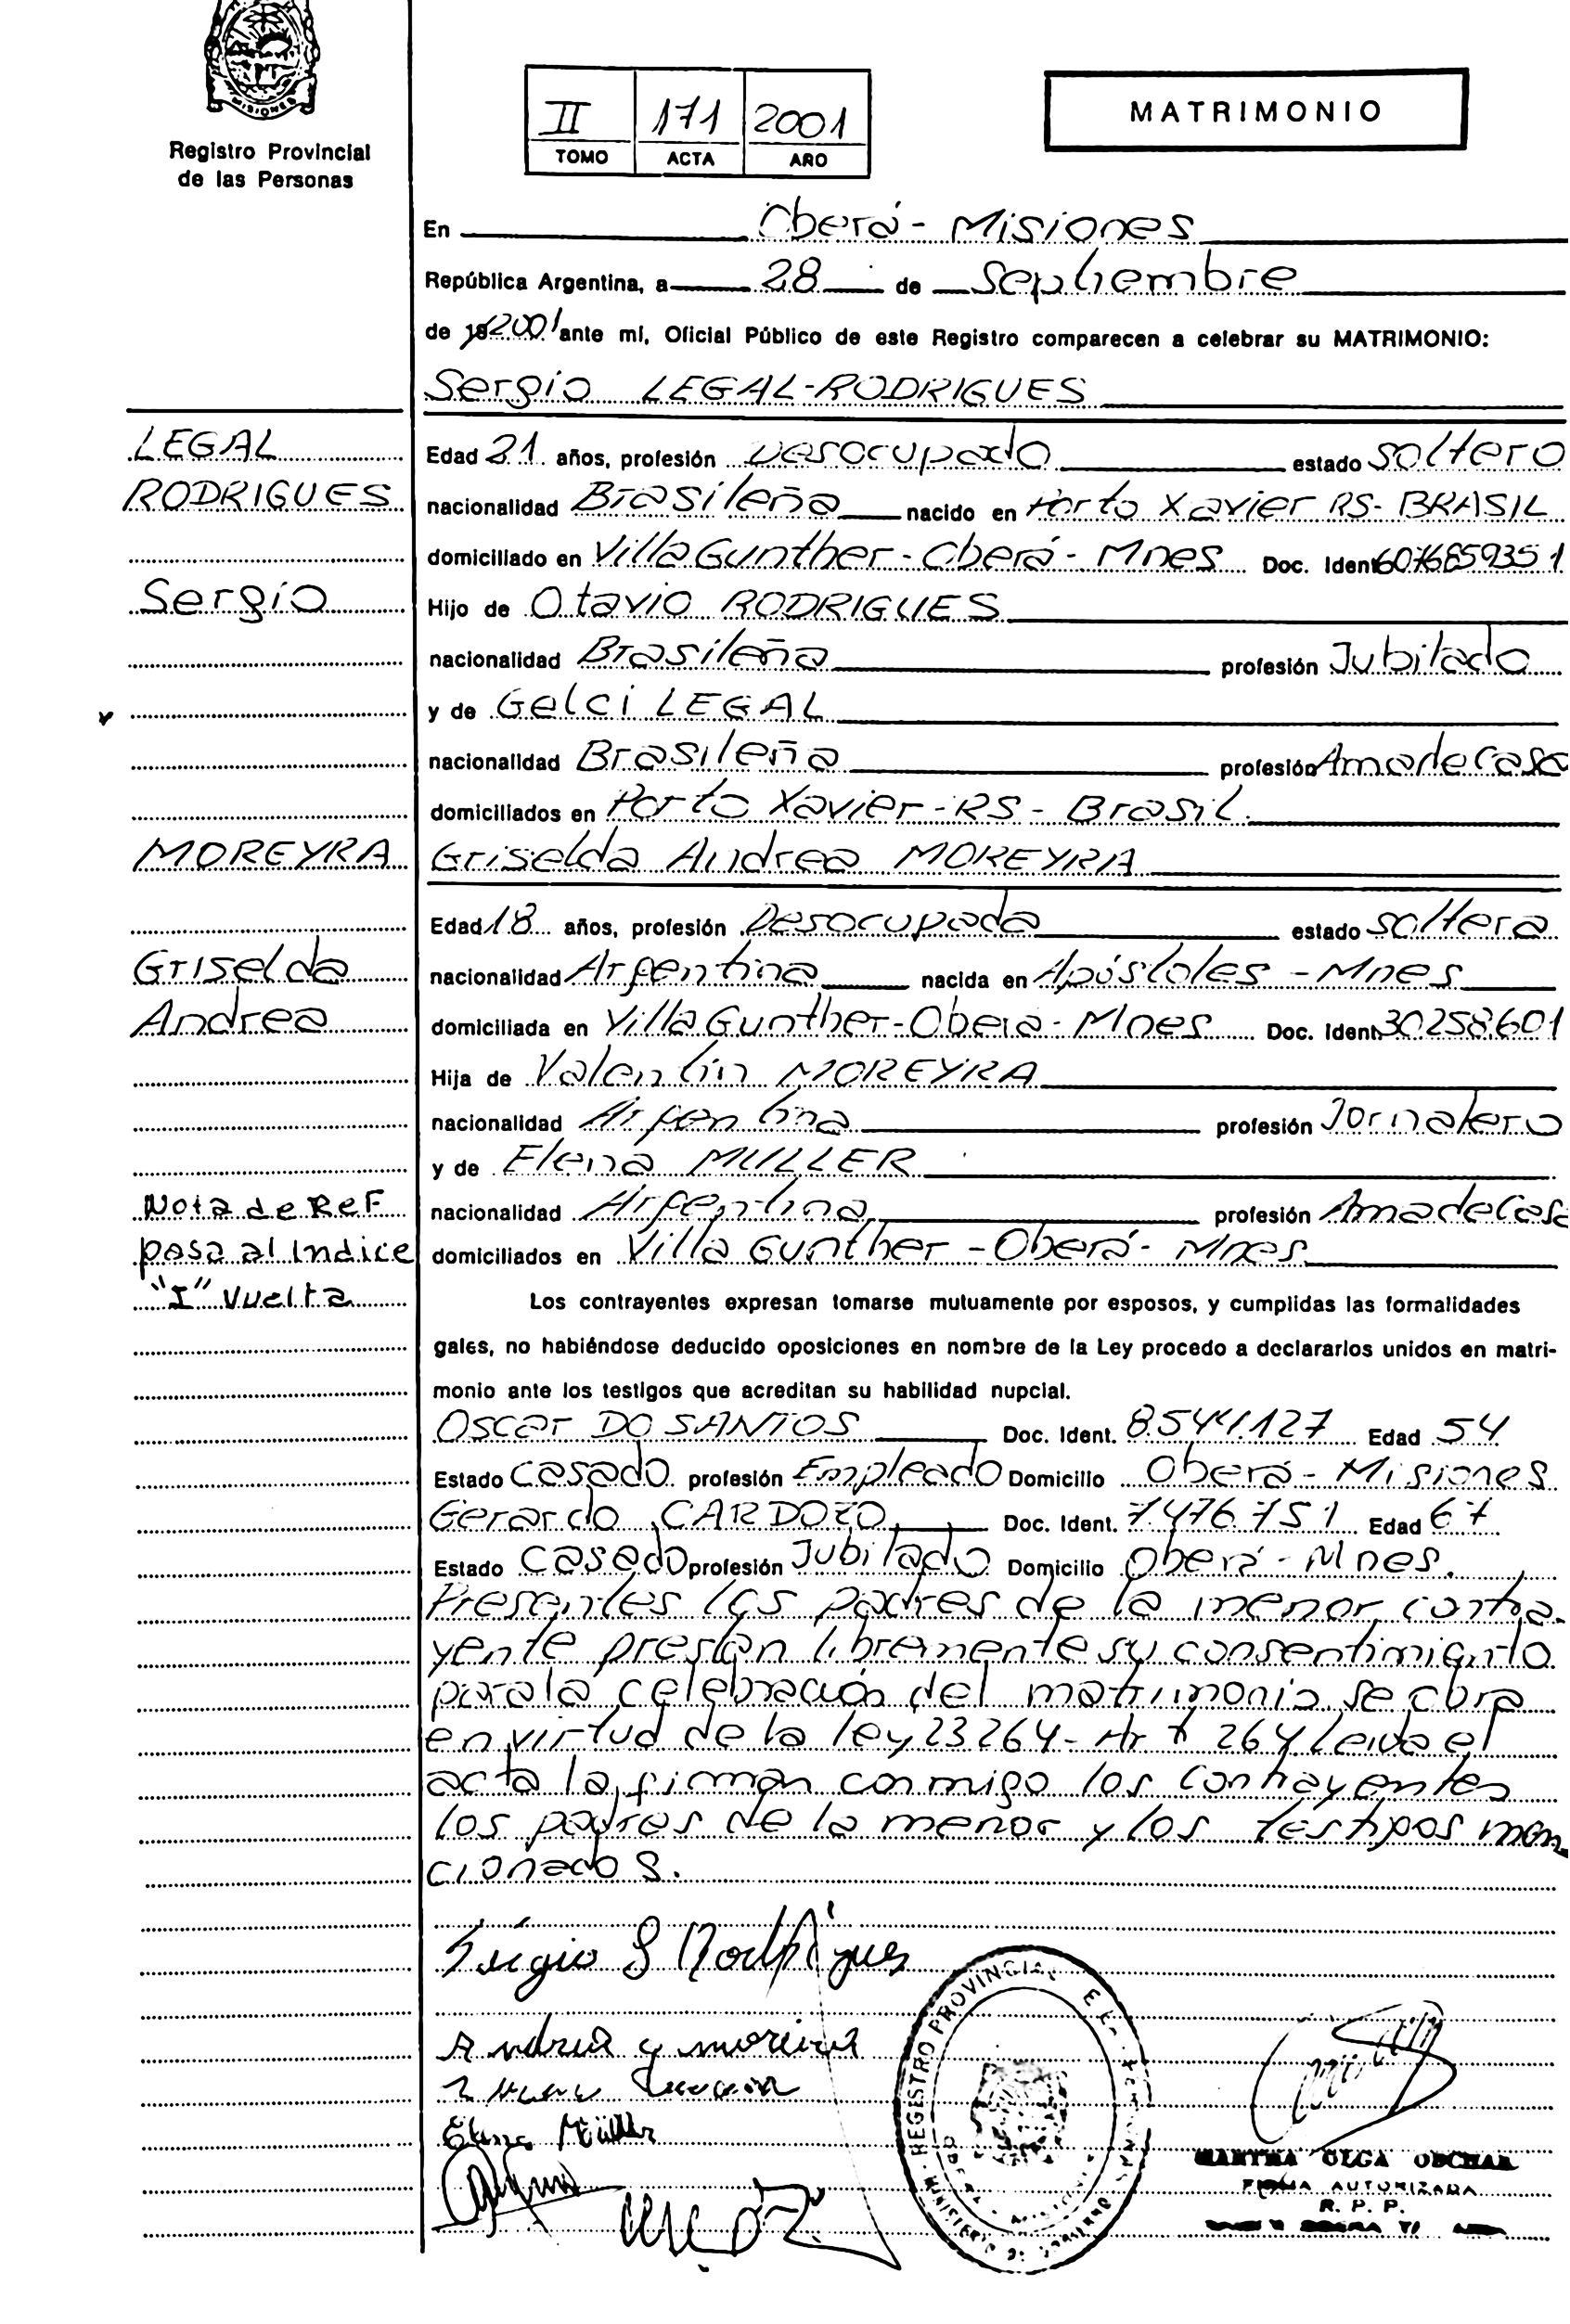 MISIONES
Registro Provincial
de las Personas
II 171 2001
TOMO ACTA AÑO
MATRIMONIO
En Oberá - Misiones
República Argentina, a 28 de Septiembre
de 19 2001 ante mí, Oficial Público de este Registro comparecen a celebrar su MATRIMONIO:
Sergio LEGAL-RODRIGUES
LEGAL
Edad 21 años, profesión Desocupado estado soltero
RODRIGUES
nacionalidad Brasileña nacido en Porto Xavier RS- BRASIL
domiciliado en Villa Gunther - Oberá - Mnes Doc. Ident 6076859351
Sergio
Hijo de Otavio RODRIGUES
nacionalidad Brasileña profesión Jubilado
y de Gelci LEGAL
nacionalidad Brasileña profesión Ama de Casa
domiciliados en Porto Xavier - RS - Brasil
MOREYRA
Griselda Andrea MOREYRA
Edad 18 años, profesión Desocupada estado soltera
Griselda
nacionalidad Argentina nacida en Apóstoles - Mnes
Andrea
domiciliada en Villa Gunther - Oberá - Mnes Doc. Ident. 30258.601
Hija de Valentín MOREYRA
nacionalidad Argentina profesión Jornalero
y de Elena MULLER
Nota de Ref
nacionalidad Argentina profesión Ama de Casa
pasa al Indice
domiciliados en Villa Gunther - Oberá - Mnes
"I" Vuelta
Los contrayentes expresan tomarse mutuamente por esposos, y cumplidas las formalidades
gales, no habiéndose deducido oposiciones en nombre de la Ley procedo a declararlos unidos en matri-
monio ante los testigos que acreditan su habilidad nupcial.
Oscar DO SANTOS Doc. Ident. 8.544.127 Edad 54
Estado Casado profesión Empleado Domicilio Oberá - Misiones
Gerardo CARDOZO Doc. Ident. 7.476.751 Edad 67
Estado Casado profesión Jubilado Domicilio Oberá - Mnes.
Presentes los padres de la menor contra-
yente prestan libremente su consentimiento
para la celebración del matrimonio. Se obra
en virtud de la ley 23264 - Art 264. Leida el
acta la firman conmigo los contrayentes
los padres de la menor y los testigos men-
cionados.
Sérgio L Rodrigues
Andrea G moreira
Elena Müller
REGISTRO PROVINCIAL
MINISTERIO DE GOBIERNO
MARTHA OLGA
FIRMA AUTORIZADA
R. P. P.